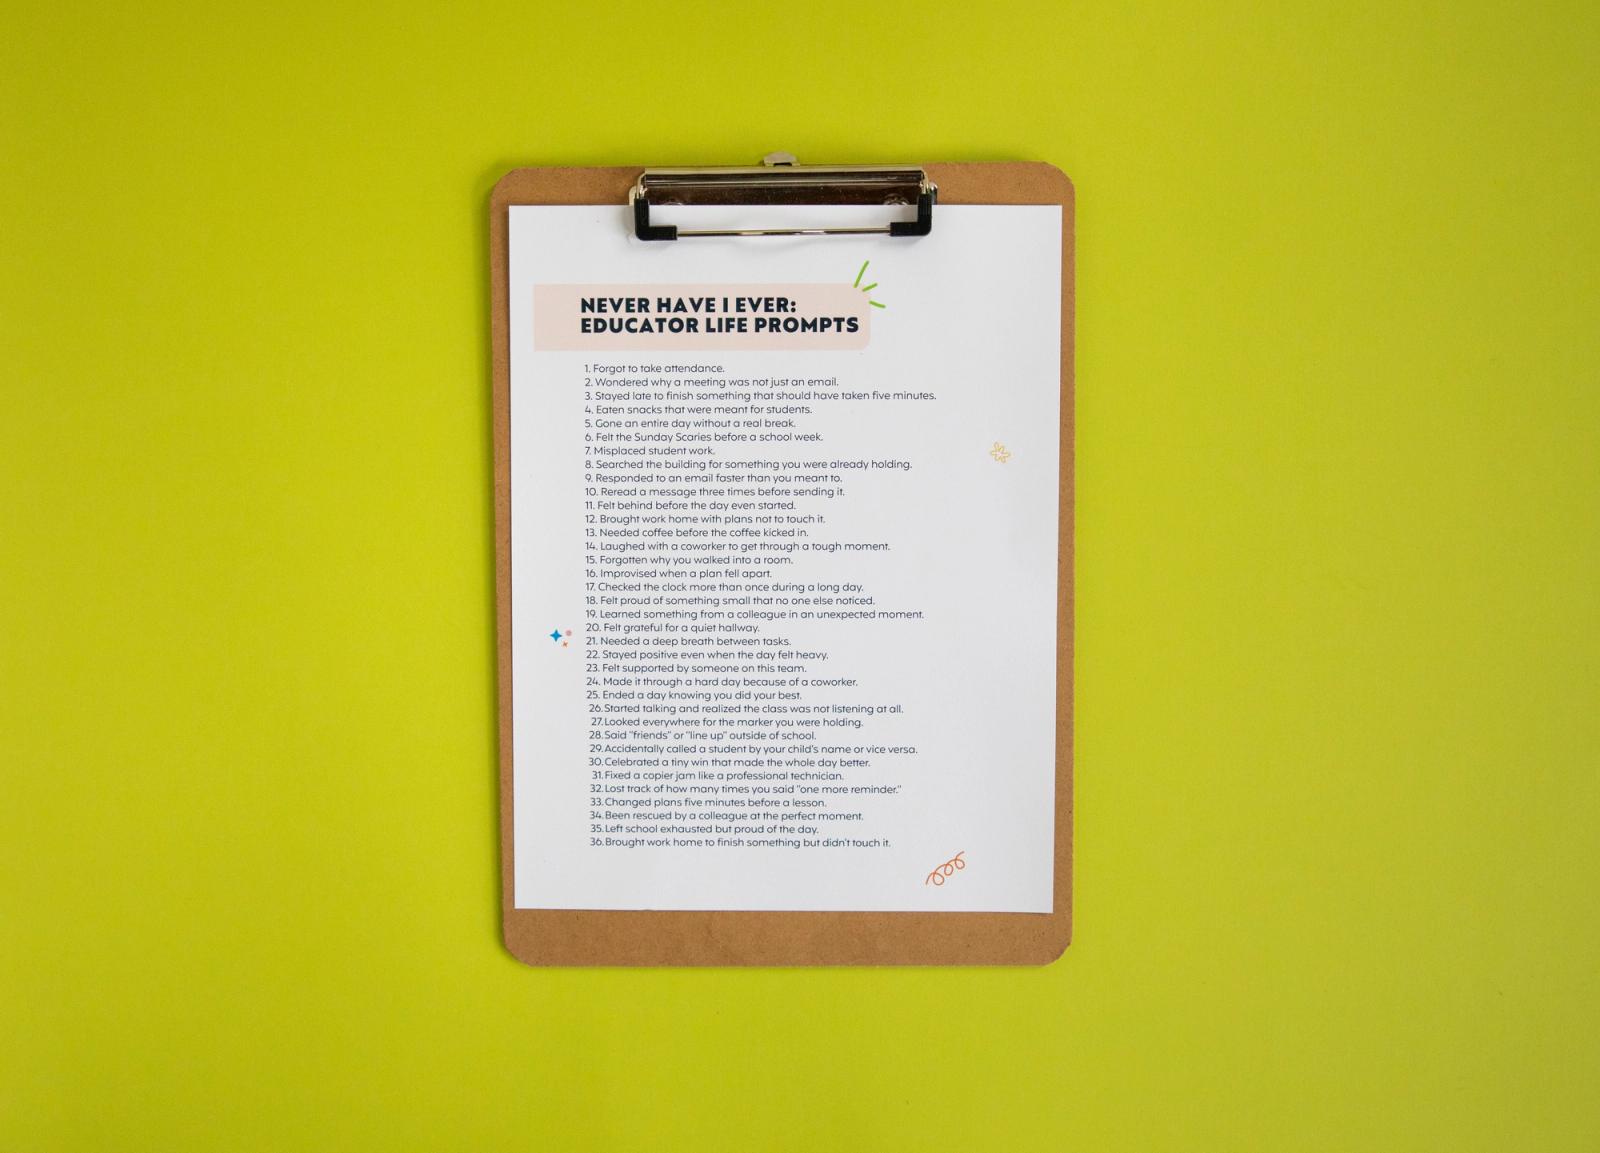 NEVER HAVE I EVER:
EDUCATOR LIFE PROMPTS
1. Forgot to take attendance.
2. Wondered why a meeting was not just an email.
3. Stayed late to finish something that should have taken five minutes.
4. Eaten snacks that were meant for students.
5. Gone an entire day without a real break.
6. Felt the Sunday Scaries before a school week.
7. Misplaced student work.
8. Searched the building for something you were already holding.
9. Responded to an email faster than you meant to.
10. Reread a message three times before sending it.
11. Felt behind before the day even started.
12. Brought work home with plans not to touch it.
13. Needed coffee before the coffee kicked in.
14. Laughed with a coworker to get through a tough moment.
15. Forgotten why you walked into a room.
16. Improvised when a plan fell apart.
17. Checked the clock more than once during a long day.
18. Felt proud of something small that no one else noticed.
19. Learned something from a colleague in an unexpected moment.
20. Felt grateful for a quiet hallway.
21. Needed a deep breath between tasks.
22. Stayed positive even when the day felt heavy.
23. Felt supported by someone on this team.
24. Made it through a hard day because of a coworker.
25. Ended a day knowing you did your best.
26. Started talking and realized the class was not listening at all.
27. Looked everywhere for the marker you were holding.
28. Said "friends" or "line up" outside of school.
29. Accidentally called a student by your child's name or vice versa.
30. Celebrated a tiny win that made the whole day better.
31. Fixed a copier jam like a professional technician.
32. Lost track of how many times you said "one more reminder."
33. Changed plans five minutes before a lesson.
34. Been rescued by a colleague at the perfect moment.
35. Left school exhausted but proud of the day.
36. Brought work home to finish something but didn't touch it.